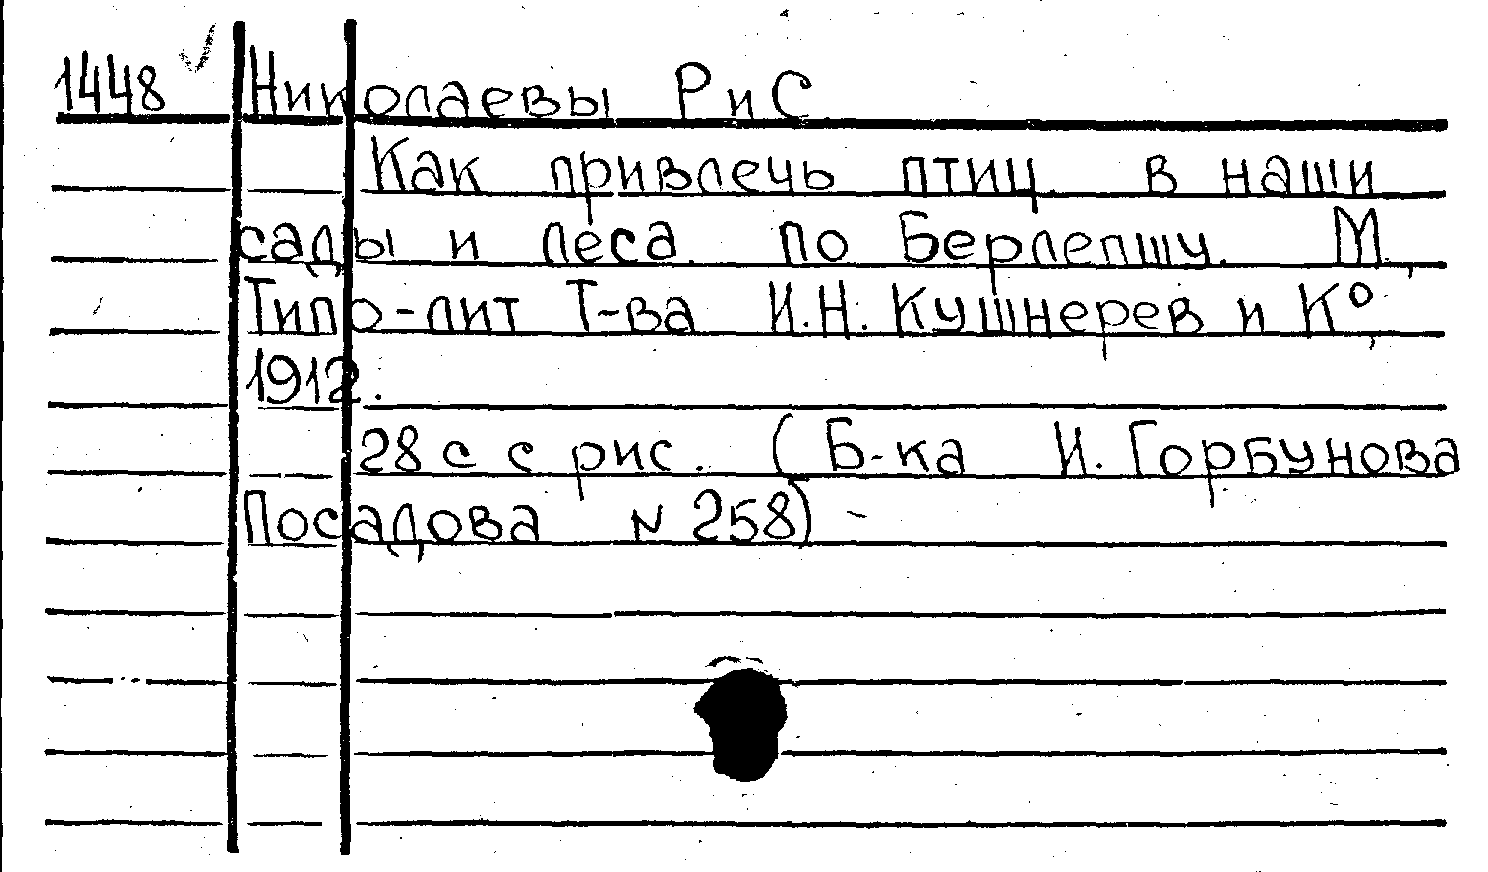 1448 Николаевы Р и С
Как привлечь птиц в наши
сады и леса. по Берлепшу. М.,
Типо-лит Т-ва И.Н. Кушнерев и К°,
1912.
28 с с рис. (Б-ка И. Горбунова
Посадова N 258) -